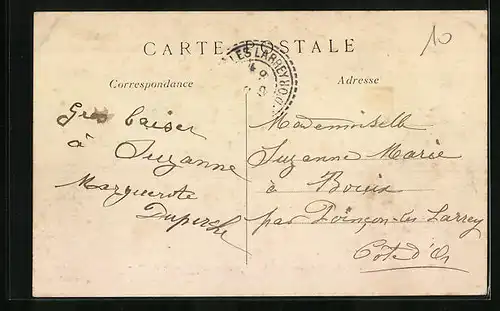 CARTE POSTALE
10
LES LARREY
Correspondance
Adresse
Gros baiser
à Suzanne
Marguerite
Mademoiselle
Suzanne Marie
à Bouix
par Poinçon-les Larrey
Côte d'Or